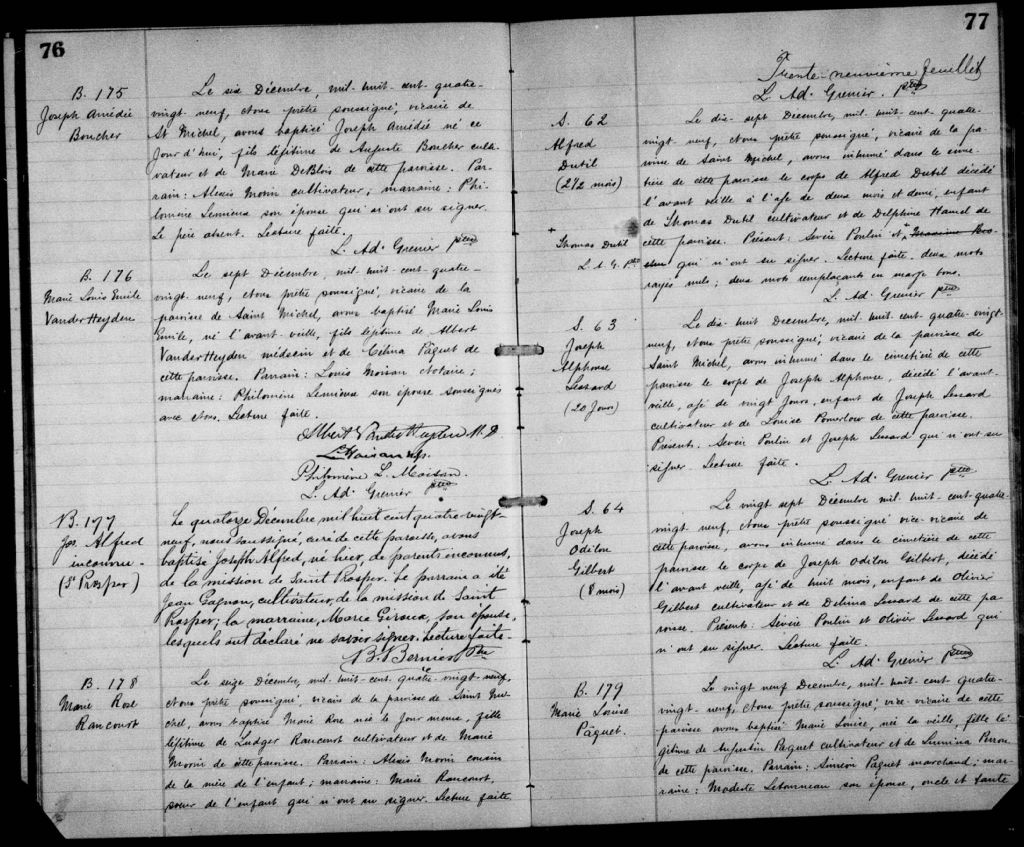 76
B. 175
Joseph Amédie
Boucher
Le six Décembre, mil-huit-cent-quatre-
vingt-neuf, Nous prêtre soussigné, vicaire de
St Michel, avons baptisé Joseph Amédie né ce
jour d'hui, fils légitime de Auguste Boucher culti-
vateur et de Marie DeBlois de cette paroisse. Par-
rain: Alexis Morin cultivateur; marraine: Phi-
lomène Lemieux son épouse qui n'ont su signer.
Le père absent. Lecture faite.
L. Ad. Grenier ptre
B. 176
Marie Louis Emile
VanderHeyden
Le sept Décembre, mil-huit-cent-quatre-
vingt-neuf, Nous prêtre soussigné, vicaire de la
paroisse de Saint Michel, avons baptisé Marie Louis
Emile, né l'avant-veille, fils légitime de Albert
VanderHeyden médecin et de Célina Pâquet de
cette paroisse. Parrain: Louis Moisan Notaire;
marraine: Philomène Lemieux son épouse soussignés
avec Nous. Lecture faite.
Albert VanderHeyden M.D.
L. Moisan N.P.
Philomène L. Moisan.
L. Ad. Grenier ptre
B. 177
Jos. Alfred
inconnu -
(St Prosper)
Le quatorze Décembre mil huit cent quatre-vingt-
neuf, nous soussigné, curé de cette paroisse, avons
baptisé Joseph Alfred, né hier, de parents inconnus,
de la mission de Saint Prosper. Le parrain a été
Jean Gagnon, cultivateur, de la mission de Saint
Prosper; la marraine, Marie Giroux, son épouse,
lesquels ont déclaré ne savoir signer. Lecture faite -
B. Bernier Ptre
B. 178
Marie Rose
Rancourt
Le seize Décembre, mil-huit-cent-quatre-vingt-neuf,
Nous prêtre soussigné, vicaire de la paroisse de Saint Mi-
chel, avons baptisé Marie Rose née le jour même, fille
légitime de Ludger Rancourt cultivateur et de Marie
Morin de cette paroisse. Parrain: Alexis Morin cousin
de la mère de l'enfant; marraine: Marie Rancourt,
soeur de l'enfant qui n'ont su signer. Lecture faite.
77
Trente-neuvième feuillet
L. Ad. Grenier. ptre
S. 62
Alfred
Dutil
(2 1/2 mois)
+
Thomas Dutil
L. A. G. Ptre
Le dix-sept Décembre, mil-huit-cent-quatre-
vingt-neuf, Nous prêtre soussigné, vicaire de la pa-
roisse de Saint Michel, avons inhumé dans le cime-
tière de cette paroisse le corps de Alfred Dutil décédé
l'avant veille à l'âge de deux mois et demi, enfant
de Thomas Dutil cultivateur et de Delphine Hamel de
cette paroisse. Présent: Sévère Poulin et + qui n'ont su signer. Lecture faite. deux mots
rayés nuls; deux mots remplaçants en marge bons.
L. Ad. Grenier ptre
S. 63
Joseph
Alphonse
Lessard
(20 Jours)
Le dix-huit Décembre, mil-huit-cent-quatre-vingt-
neuf, Nous prêtre soussigné, vicaire de la paroisse de
Saint Michel, avons inhumé dans le cimetière de cette
paroisse le corps de Joseph Alphonse, décédé l'avant-
veille, âgé de vingt jours, enfant de Joseph Lessard
cultivateur et de Louise Pomerlow de cette paroisse.
Présents. Sévère Poulin et Joseph Lessard qui n'ont su
signer. Lecture faite.
L. Ad. Grenier ptre
S. 64
Joseph
Odilon
Gilbert
(8 mois)
Le vingt sept Décembre mil-huit-cent-quatre-
vingt-neuf, Nous prêtre soussigné vice-vicaire de
cette paroisse, avons inhumé dans le cimetière de cette
paroisse le corps de Joseph Odilon Gilbert, décédé
l'avant veille, âgé de huit mois, enfant de Olivier
Gilbert cultivateur et de Délima Lessard de cette pa-
roisse. Présents: Sévère Poulin et Olivier Lessard qui
n'ont su signer. Lecture faite.
L. Ad. Grenier ptre
B. 179
Marie Louise
Pâquet.
Le vingt neuf Décembre, mil-huit-cent-quatre-
vingt-neuf, Nous prêtre soussigné, vice-vicaire de cette
paroisse avons baptisé Marie Louise, née la veille, fille lé-
gitime de Augustin Paquet cultivateur et de Lumina
de cette paroisse. Parrain: Siméon Paquet marchand; mar-
raine: Modeste Letourneau son épouse, oncle et tante